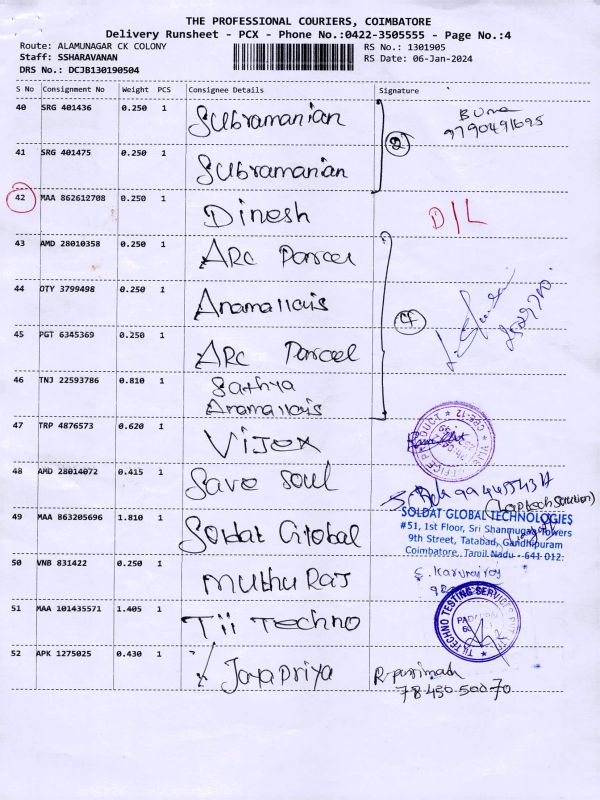 THE PROFESSIONAL COURIERS, COIMBATORE
Delivery Runsheet - PCX - Phone No.:0422-3505555 - Page No.:4
Route: ALAMUNAGAR CK COLONY RS No.: 1301905
Staff: SSHARAVANAN RS Date: 06-Jan-2024
DRS No.: DCJB130190504
S No Consignment No Weight PCS Consignee Details Signature
40 SRG 401436 0.250 1 Subramanian
9790491695
41 SRG 401475 0.250 1 Subramanian
2
42 MAA 862612708 0.250 1 Dinesh D/L
43 AMD 28010358 0.250 1 ARC Parcel
44 OTY 3799498 0.250 1 Anamallais
4
45 PGT 6345369 0.250 1 ARC Parcel
46 TNJ 22593786 0.810 1 Sathya
Anamallais
47 TRP 4876573 0.620 1 Vijex
48 AMD 28014072 0.415 1 Save Soul
49 MAA 863205696 1.810 1 Soldat Global
SOLDAT GLOBAL TECHNOLOGIES
#51, 1st Floor, Sri Shanmugas Towers
9th Street, Tatabad, Gandhipuram
Coimbatore, Tamil Nadu - 641 012.
50 VNB 831422 0.250 1 Muthu Raj
51 MAA 101435571 1.405 1 Tii Techno
TECHNO TESTING SERVICES
52 APK 1275025 0.430 1 Jayapriya
78450 50070